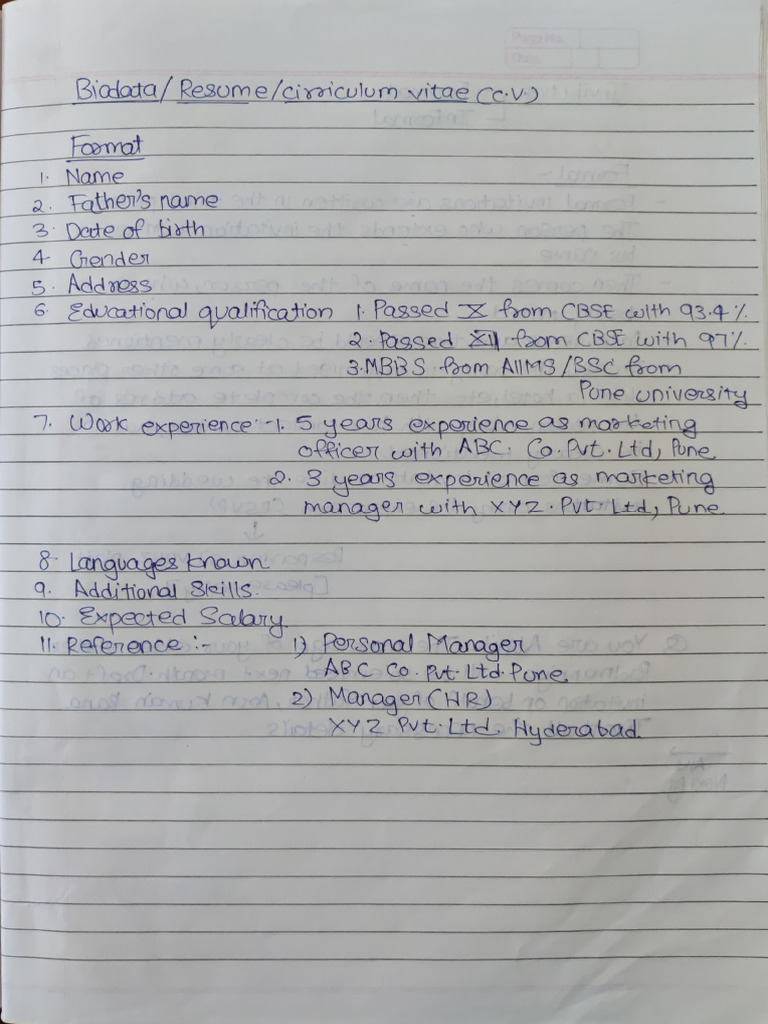 Biodata/Resume/cirriculum vitae (C.V.)
Format
1. Name
2. Father's name
3. Date of birth
4. Gender
5. Address
6. Educational qualification 1. Passed X from CBSE with 93.4%
2. Passed XII from CBSE with 97%
3. MBBS from AIIMS/BSC from
Pune university
7. Work experience :- 1. 5 years experience as marketing
officer with ABC. Co. Pvt. Ltd, Pune
2. 3 years experience as marketing
manager with XYZ. Pvt Ltd, Pune
8. Languages known
9. Additional Skills.
10. Expected Salary
11. Reference :- 1) Personal Manager
ABC Co. Pvt. Ltd. Pune.
2) Manager (HR)
XYZ Pvt. Ltd. Hyderabad.